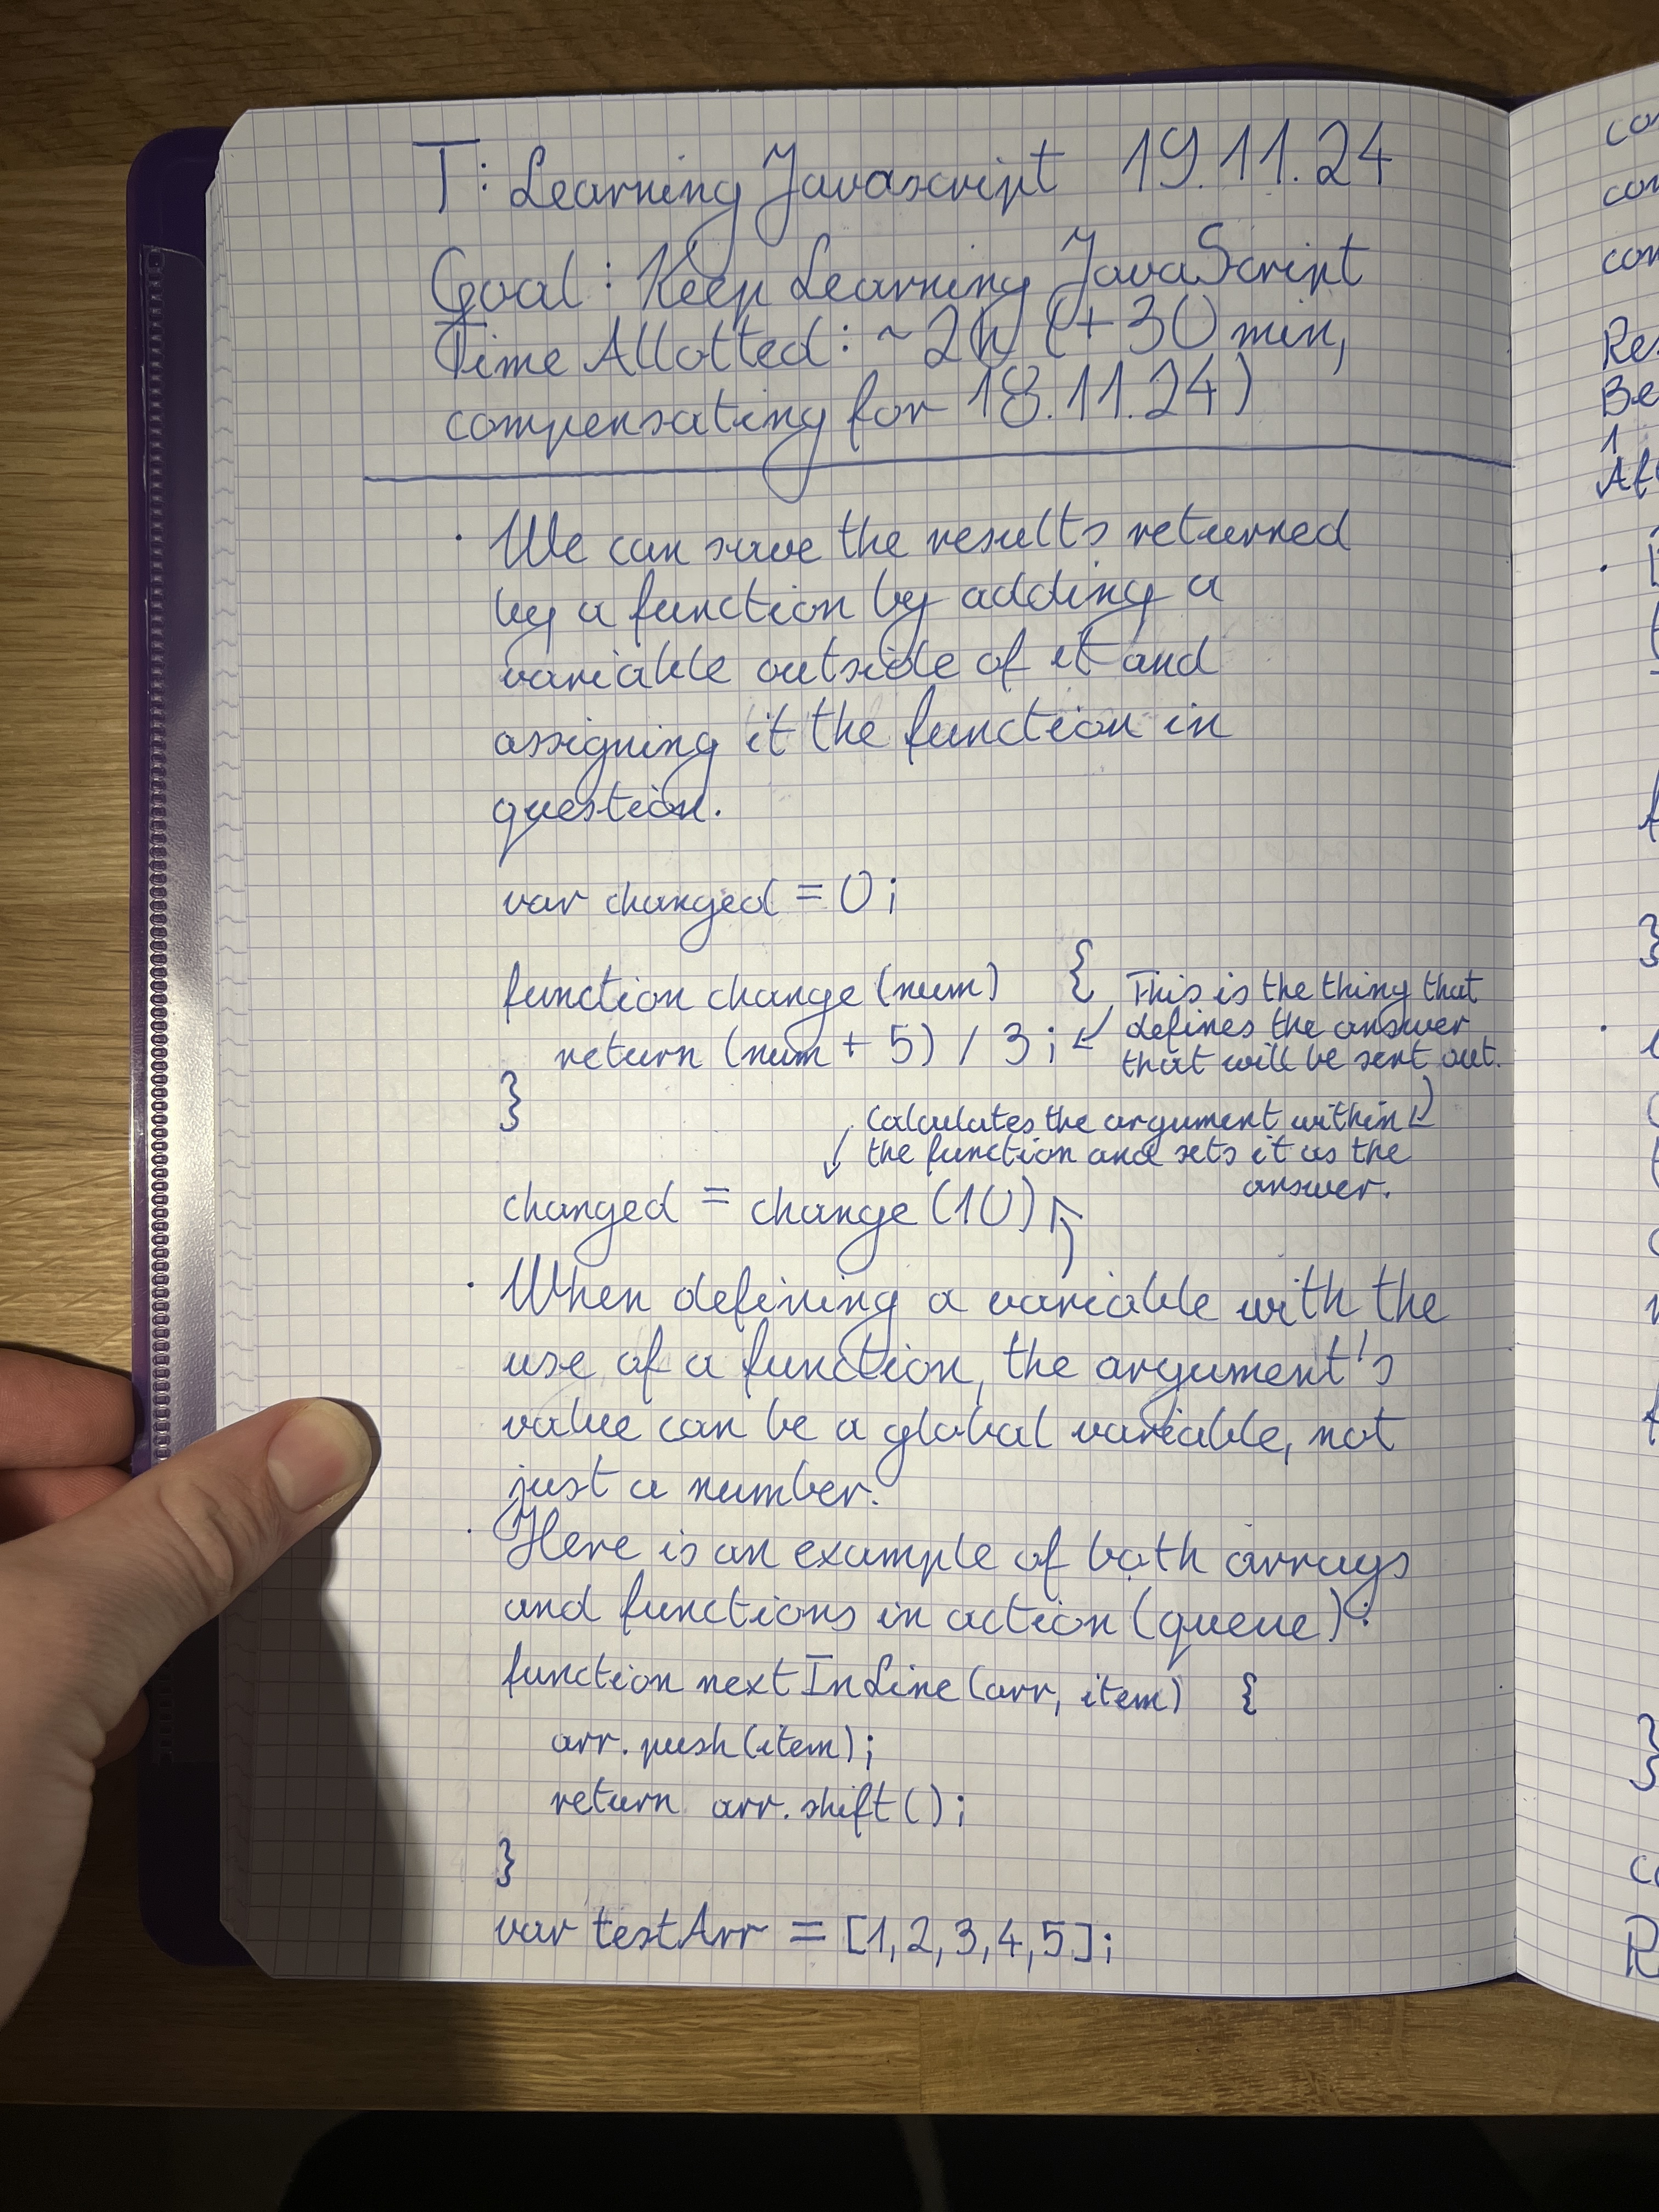 T: Learning Javascript 19.11.24
Goal: Keep Learning JavaScript
Time Allotted: ~2h (+30 min,
compensating for 18.11.24)
· We can save the results returned
by a function by adding a
variable outside of it and
assigning it the function in
question.
var changed = 0;
function change (num) {
This is the thing that
defines the answer
that will be sent out.
return (num + 5) / 3;
}
Calculates the argument within
the function and sets it as the
answer.
changed = change (10)
· When defining a variable with the
use of a function, the argument's
value can be a global variable, not
just a number.
· Here is an example of both arrays
and functions in action (queue):
function nextInLine (arr, item) {
arr.push(item);
return arr.shift();
}
var testArr = [1,2,3,4,5];
Be
1